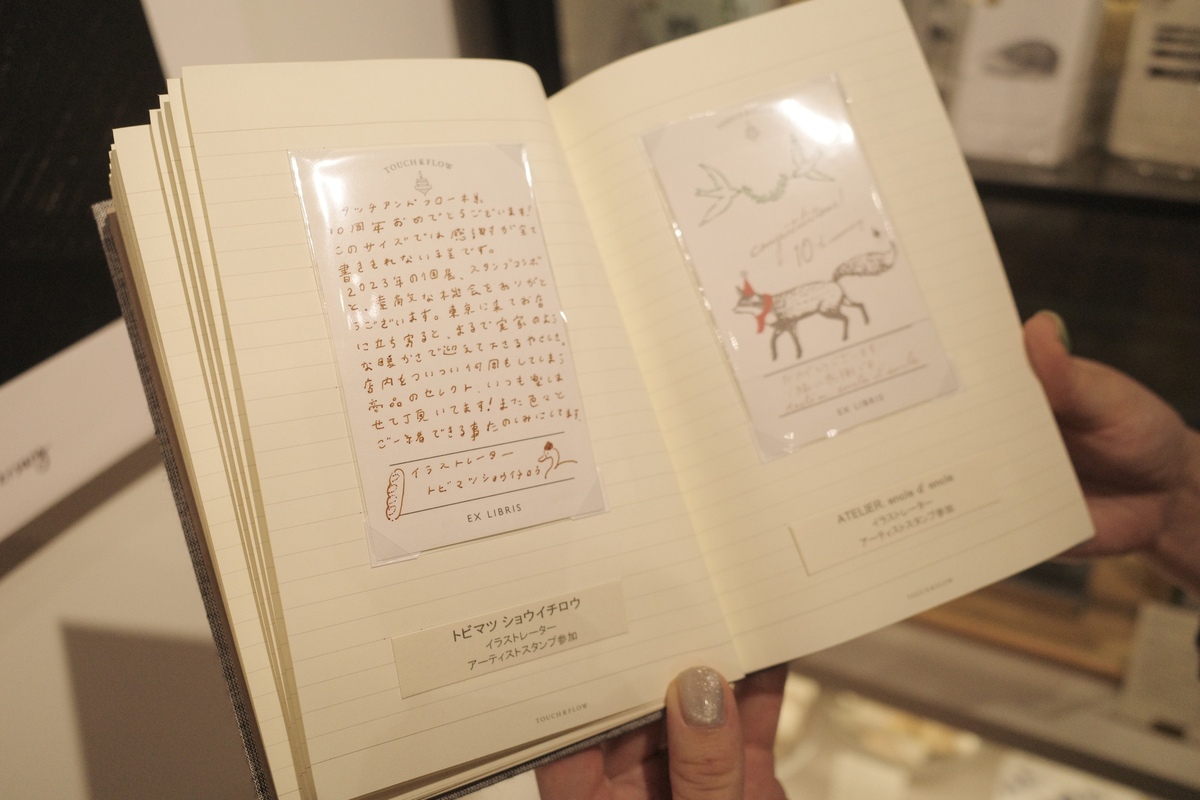 TOUCH&FLOW
タッチアンドフロー 様
10周年おめでとうございます!
このサイズでは感謝が全て
書ききれない手差です。
2023年の個展、スタンプコラボ
と、素敵な機会をありがと
うございます。東京に来てお店
に立ち寄ると、まるで実家のよう
な暖かさで迎えて下さるやさしさ。
店内をついつい何周もしてしまう
商品のセレクト、いつも楽しま
せて頂いてます!また色々と
ご一緒できる事たのしみにしてます。
イラストレーター
トビマツショウイチロウ
EX LIBRIS
トビマツ ショウイチロウ
イラストレーター
アーティストスタンプ参加
TOUCH&FLOW
Congratulations!
10th
EX LIBRIS
ATELIER. encle d' encle
イラストレーター
アーティストスタンプ参加
TOUCH&FLOW